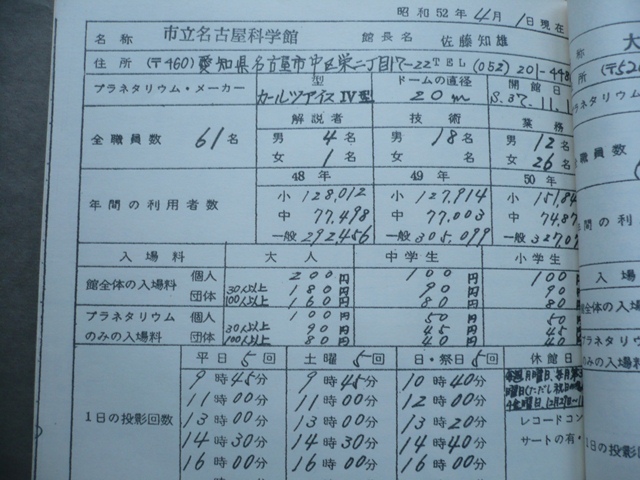 昭和52年4月1日現在
名称 市立名古屋科学館 館長名 佐藤知雄
住所 (〒460) 愛知県名古屋市中区栄二丁目17-22 TEL (052) 201-448
プラネタリウム・メーカー 型 カールツアイス IV型 ドームの直径 20m 開館日 S.37.11.1
全職員数 61名 解説者 技術 業務
男 4名 男 18名 男 12名
女 1名 女 名 女 26名
48年 49年 50年
年間の利用者数
小 128,012 小 127,914 小 151,84
中 77,498 中 77,003 中 74,87
一般 292,456 一般 305,099 一般 3270
入場料 大人 中学生 小学生
館全体の入場料 個人 200円 100円 100円
団体 30人以上 180円 90円 90
100人以上 160円 80円 80
プラネタリウムのみの入場料 個人 100円 50円 50
団体 30人以上 90円 45円 45
100人以上 80円 40円 40
1日の投影回数 平日 5回 土曜 5回 日・祭日 5回 休館日
9時45分 9時45分 10時40分
11時00分 11時00分 12時00分
13時00分 13時00分 13時20分
14時30分 14時30分 14時40分
16時00分 16時00分 16時00分
レコードコン
サートの有・
名称 大
住所 (〒52
プラネタリウム
全職員数
年間の利
入場
館全体の入
プラネタリ
のみの入場
1日の投影